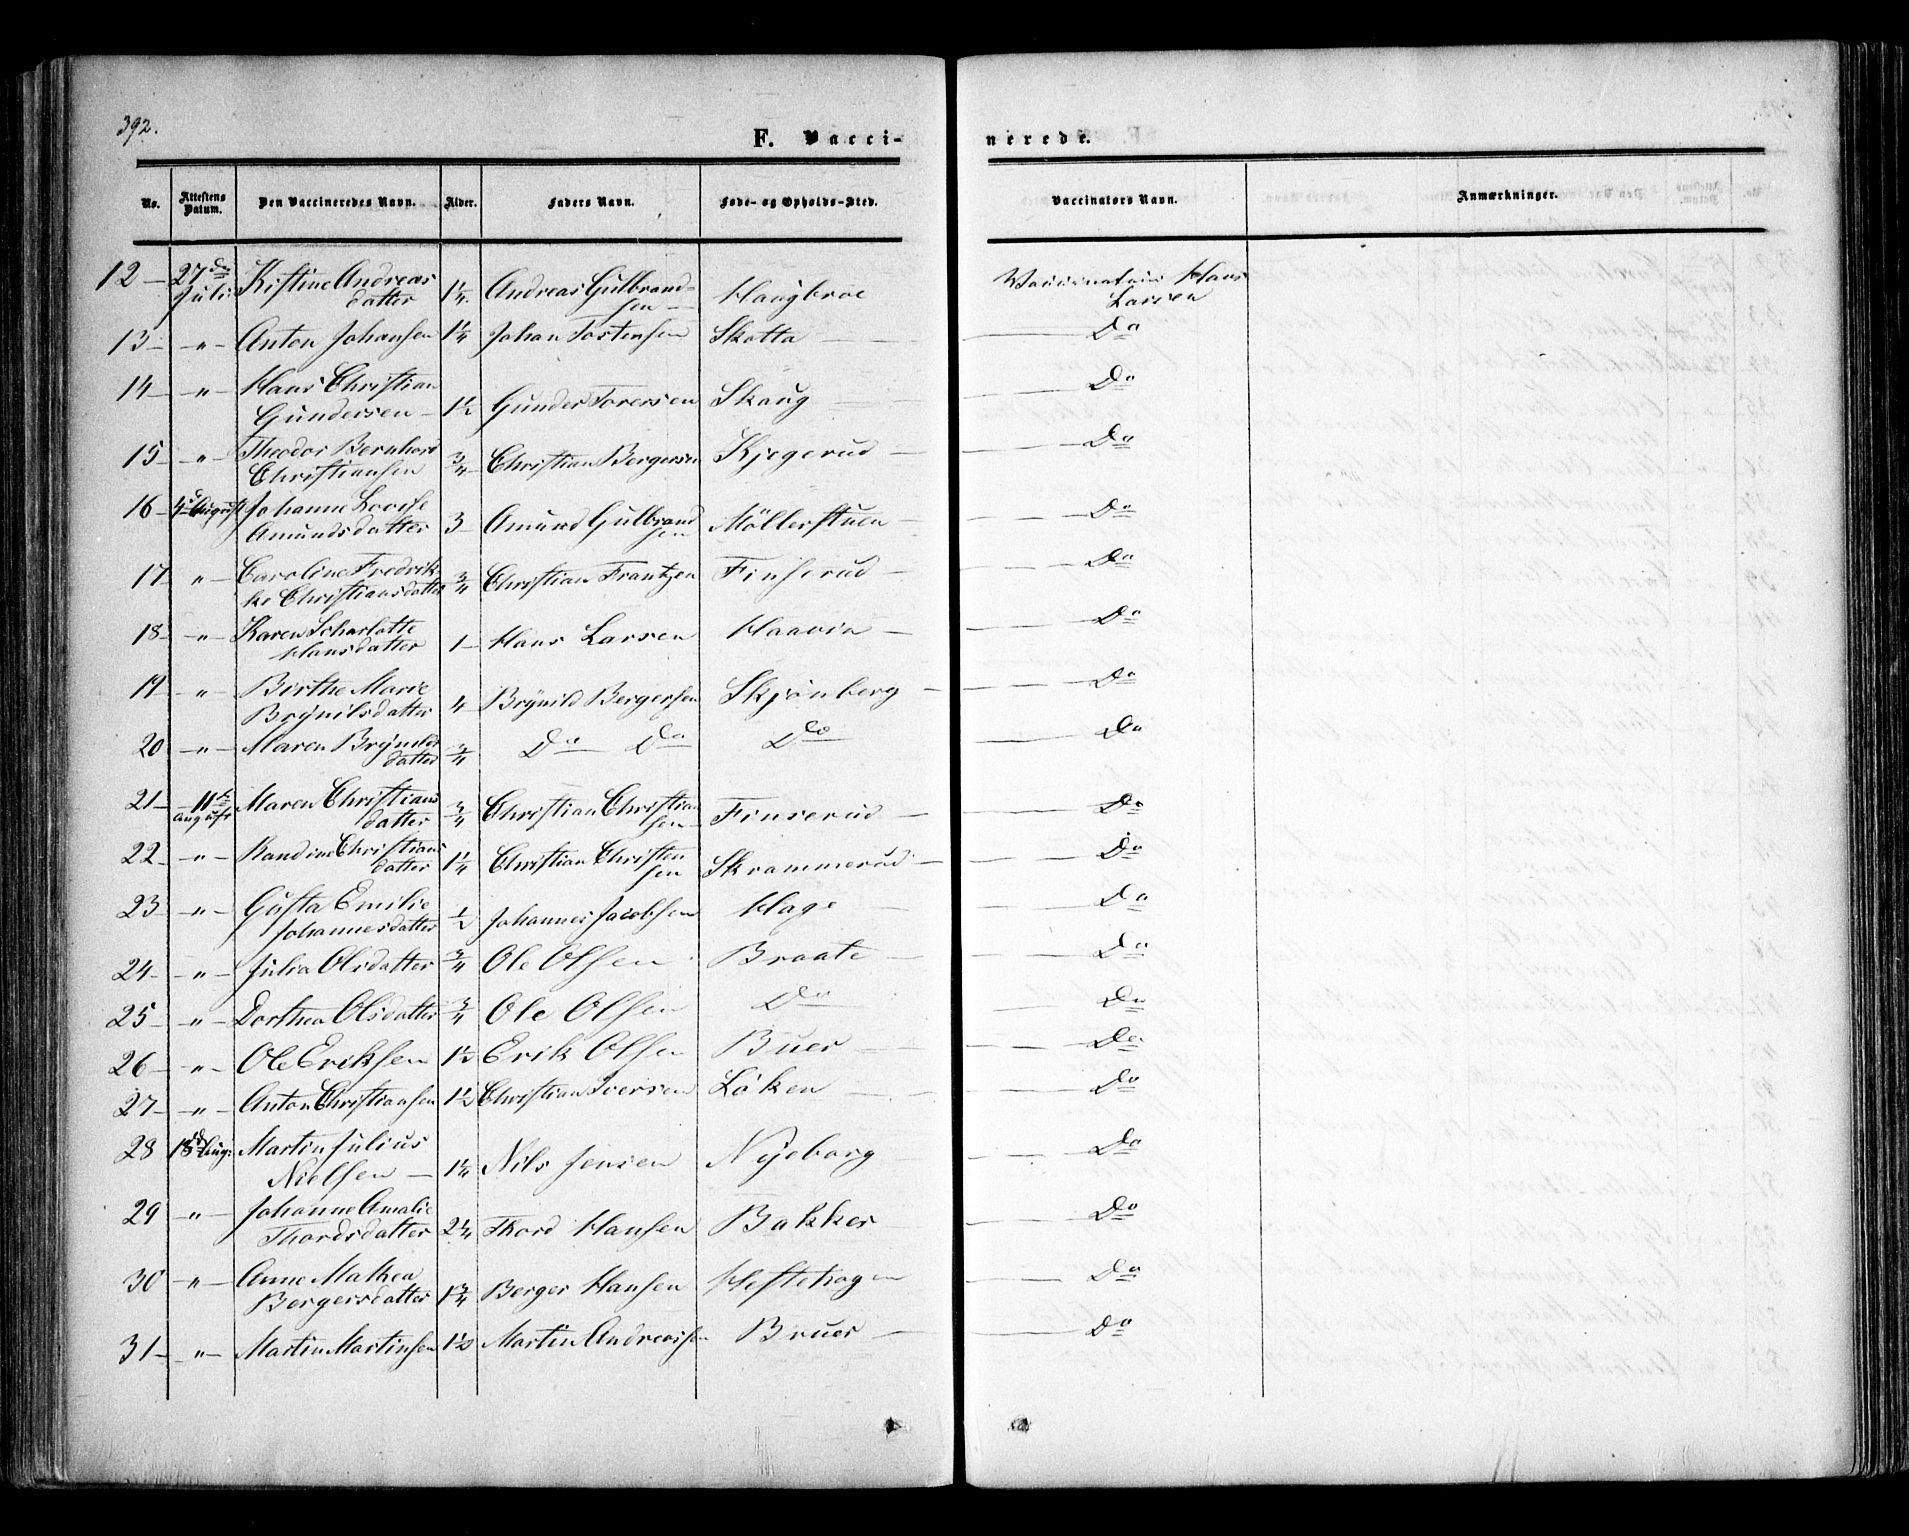 392.
F. Vacci-
nerede.
No. Attestens Datum. Den Vaccineredes Navn. Alder. Faders Navn. Føde- og Opholds-Sted. Vaccinateurs Navn. Anmærkninger.
12 – 27de Kistine Andreas Andreas Gulbrand- Vaccinateur Hans
Juli datter 1¼ sen – Haugbroe Larsen
13 – „ – Anton Johansen 1¼ Johan Tostensen Skotta – Do
14 – „ – Hans Christian Do
Gundersen – 1½ Gunder Torersen Skaug
15 – „ – Theodor Bernhard Do
Christiansen ¾ Christian Bergersen Kjegerud –
16 4de August Johanne Lovise Do
Amundsdatter 3 – Amund Gulbrand Möllerstuen –
sen
17 – „ – Caroline Fredrik- Do
ke Christiansdatter ¾ Christian Frantzen Finserud –
18 – „ – Karen Scharlotte Do
Hansdatter 1 – Hans Larsen Haavin –
19 – „ – Birthe Marie Do
Brynilsdatter 4 Brynild Bergersen Skjönberg –
20 – „ – Maren Brynilds Do
datter ¾ Do Do Do
21 – 11te Maren Christians Do
August datter ¾ Christian Christian Finserud –
sen –
22 – „ – Randine Christians Do
datter 1¼ Christian Christen Skrammerud –
sen
23 – „ – Gusta Emilie Do
Johannesdatter ½ Johannes Jacobsen Hage
24 – „ – Julia Olsdatter ¾ Ole Olsen Braate – Do
25 – „ – Dorthea Olsdatter ¾ Ole Olsen Do Do
26 – „ – Ole Eriksen 1½ Erik Olsen Buer Do
27 – „ – Anton Christiansen 1½ Christian Iversen Löken Do
28 18de Aug: Martin Julius Do
Nielsen – 1¼ Nils Jensen Nyeborg
29 – „ – Johanne Amalie Do
Thordsdatter 2¼ Thord Hansen Bakker
30 – „ – Anne Mathea Do
Bergersdatter 1¾ Berger Hansen Heftehagen
31 – „ – Martin Martinsen 1½ Martin Andreassen Bruer – Do